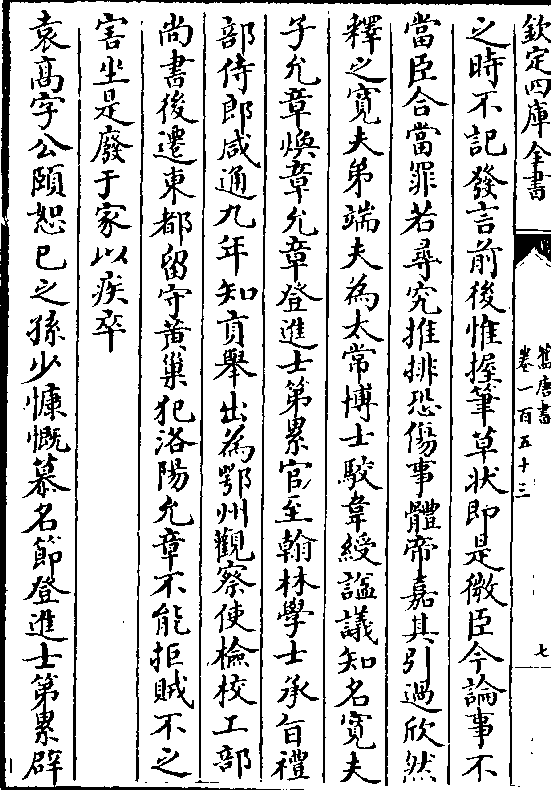 欽定四庫全書
舊唐書
卷一百五十三
七
之時不記發言前後惟握筆草狀即是微臣今論事不
當臣合當罪若尋究推排恐傷事體帝嘉其引過欣然
釋之寛夫弟端夫為太常博士駮韋綬諡議知名寛夫
子允章煥章允章登進士第累官至翰林學士承㫖禮
部侍郎咸通九年知貢舉出為鄂州觀察使檢校工部
尚書後遷東都留守黄巢犯洛陽允章不能拒賊不之
害坐是廢于家以疾卒
袁髙字公頤恕已之孫少慷慨慕名節登進士第累辟